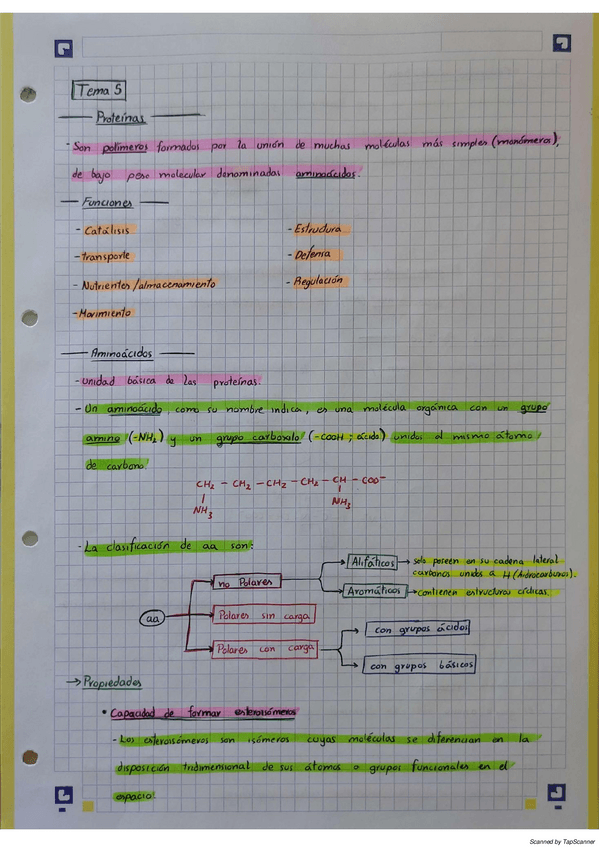 Tema 5
Proteínas
- Son polímeros formados por la unión de muchas moléculas más simples (monómeros),
de bajo peso molecular denominadas aminoácidos.
Funciones
- Catálisis
- Estructura
- transporte
- Defensa
- Nutrientes/almacenamiento
- Regulación
- Movimiento
Aminoácidos
- unidad básica de las proteínas.
- Un aminoácido, como su nombre indica, es una molécula orgánica con un grupo
amino (-NH2) y un grupo carboxilo (-COOH; ácido) unidos al mismo átomo
de carbono.
CH2 - CH2 - CH2 - CH2 - CH - COO-
NH3 NH3
- La clasificación de aa son:
Alifáticos → solo poseen en su cadena lateral
carbonos unidos a H (hidrocarburos).
no Polares
Aromáticos → contienen estructuras cíclicas.
aa
Polares sin carga
con grupos ácidos
Polares con carga
con grupos básicos
→ Propiedades
• Capacidad de formar esteroisómeros
- Los esteroisómeros son isómeros cuyas moléculas se diferencian en la
disposición tridimensional de sus átomos o grupos funcionales en el
espacio.
Scanned by TapScanner